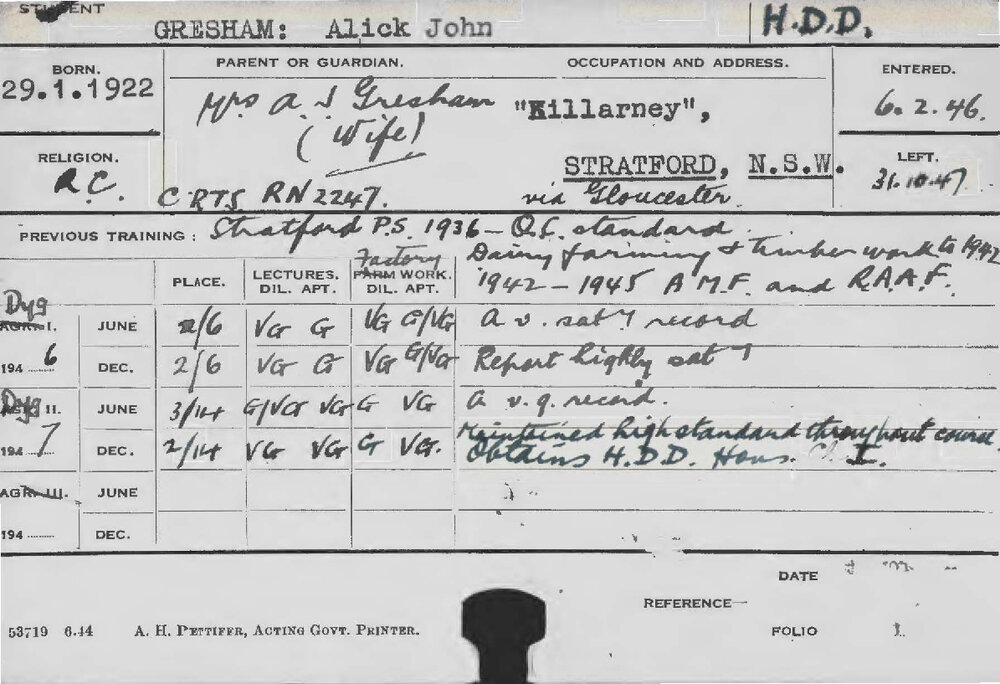 STUDENT
GRESHAM: Alick John H.D.D.
BORN. PARENT OR GUARDIAN. OCCUPATION AND ADDRESS. ENTERED.
29.1.1922 Mrs A J Gresham "Killarney", 6.2.46.
(Wife)
RELIGION. STRATFORD, N.S.W. LEFT.
R.C. CRTS RN2247. via Gloucester. 31.10.47
PREVIOUS TRAINING: Stratford P.S. 1936 - Q.C. standard.
Dairy farming & timber work to 1942
1942 - 1945 A.M.F. and R.A.A.F.
Factory
PLACE. LECTURES. FARM WORK.
DIL. APT. DIL. APT.
Dyg
AGR. I. JUNE 2/6 VG G VG G/VG A v. sat y record
194 6 DEC. 2/6 VG G VG G/VG Report highly sat y
Dyg
II. JUNE 3/14 G/VG VG G VG A v.g. record.
194 7 DEC. 2/14 VG VG G VG. Maintained high standard throughout course
Obtains H.D.D. Hons. I.
AGR. III. JUNE
194 DEC.
DATE
REFERENCE—
53719 6.44 A. H. PETTIFER, ACTING GOVT. PRINTER. FOLIO 1.